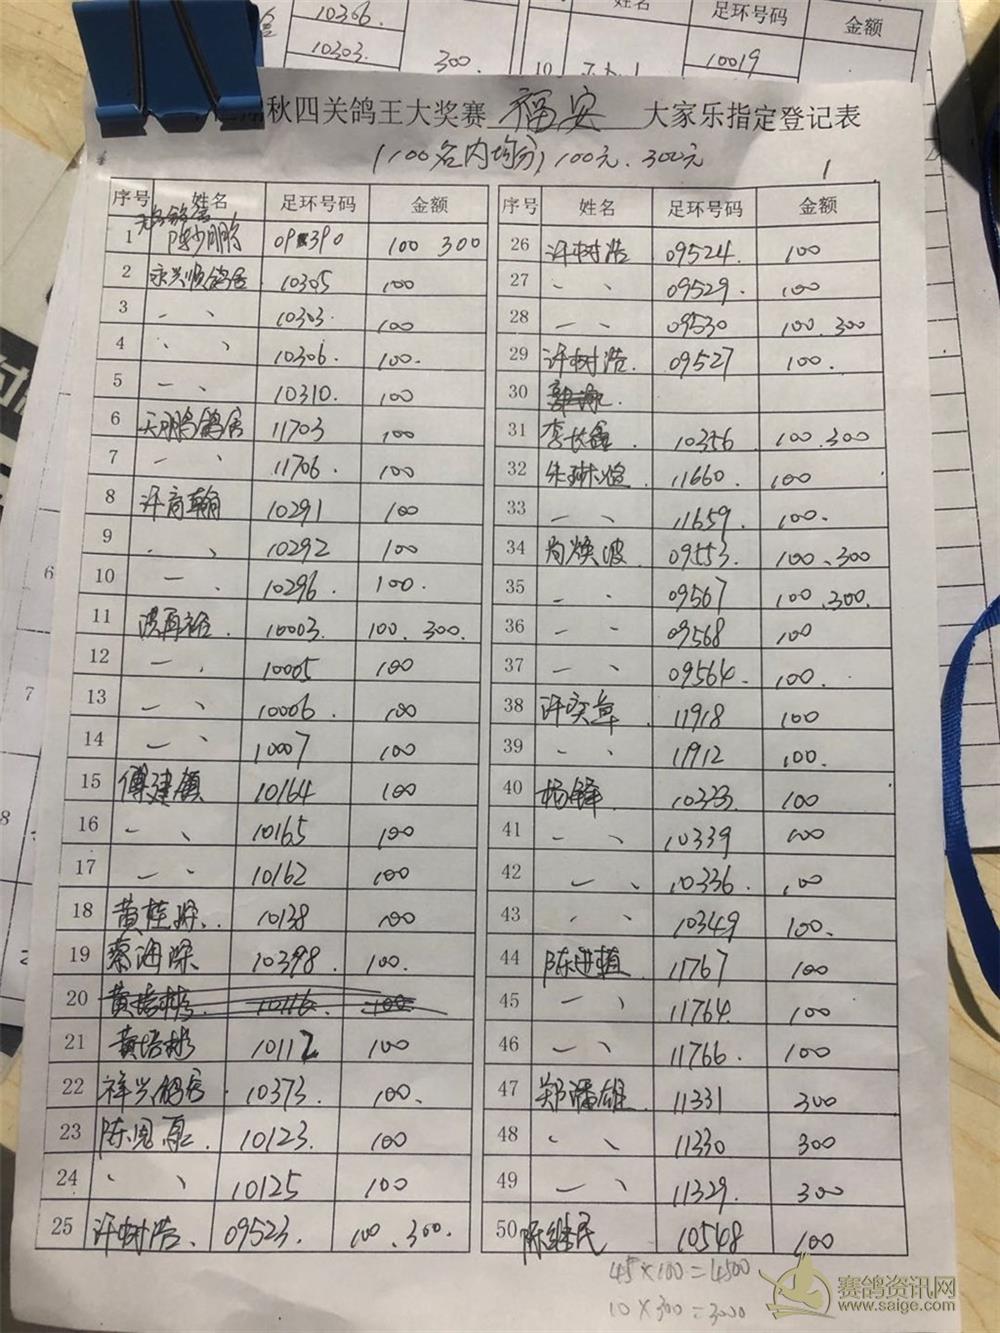 10366
10303.
300.
姓名
足环号码
金额
10019
秋四关鸽王大奖赛 福安 大家乐指定登记表
(100名内均分) 100元.300元
1
序号 姓名 足环号码 金额
1 390 100 300
2 永兴顺鸽舍 10305 100
3 一 、 10303. 100
4 、 、 10306. 100.
5 一 、 10310. 100
6 天鹏鸽舍 11703 100
7 一 、 11706. 100
8 许商翰 10291 100
9 、 、 10292 100
10 一 、 10296. 100.
11 洪再 10003. 100.300.
12 一 、 10005 100
13 一 、 10006. 100
14 一 、 10007 100
15 傅建镇 10164 100
16 一 、 10165 100
17 一 、 10162 100
18 黄桂 10138 100
19 蔡海深 10398. 100.
20 黄培彬. 10116. 100
21 黄培彬 10112 100
22 祥兴鸽舍. 10373. 100.
23 陈 10123. 100
24 、 、 10125 100
25 许树浩. 09523. 100.300.
序号 姓名 足环号码 金额
26 许树浩 09524. 100
27 、 、 09529. 100
28 一 、 09530 100.300
29 许树浩. 09527 100.
30
31 李长鑫 10356 100.300
32 朱琳煌 11660. 100
33 一 、 11659. 100.
34 尚焕波 09553. 100.300
35 、 、 09567 100.300.
36 一 、 09568 100
37 一 、 09564. 100.
38 许奕草. 11918 100
39 、 、 11912 100.
40 杨锋. 10333 100
41 一 、 10339 100
42 一 、 10336. 100
43 、 、 10349 100.
44 陈进植 11767 100
45 一 、 11764. 100
46 一 、 11766. 100
47 郑潘雄. 11331 300
48 、 、 11330 300
49 一 、 11329. 300
50 陈继民 10548 100
45×100=4500
10×300=3000
赛鸽资讯网
www.saige.com